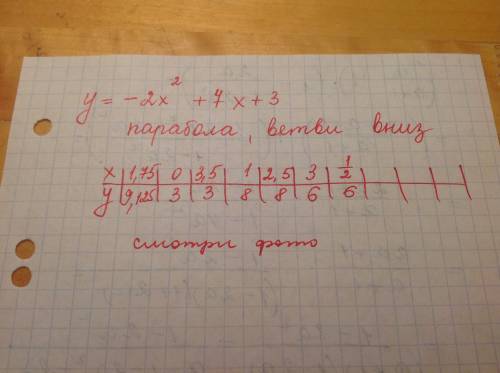 y = -2x² + 7x + 3
парабола, ветви вниз
x | 1,75 | 0 | 3,5 | 1 | 2,5 | 3 | 1/2 | | |
y | 9,125 | 3 | 3 | 8 | 8 | 6 | 6 | | |
смотри фото